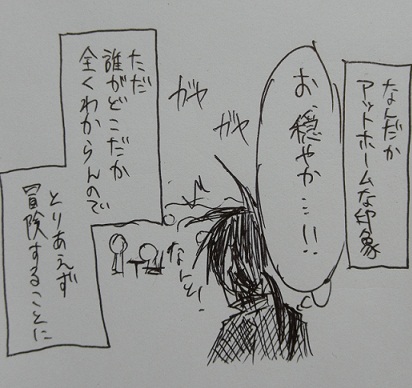 なんだか
アットホームな印象
お、穏やか…!!
ガヤ
ガヤ
なんと!
ただ
誰がどこだか
全くわからんので
とりあえず
冒険することに